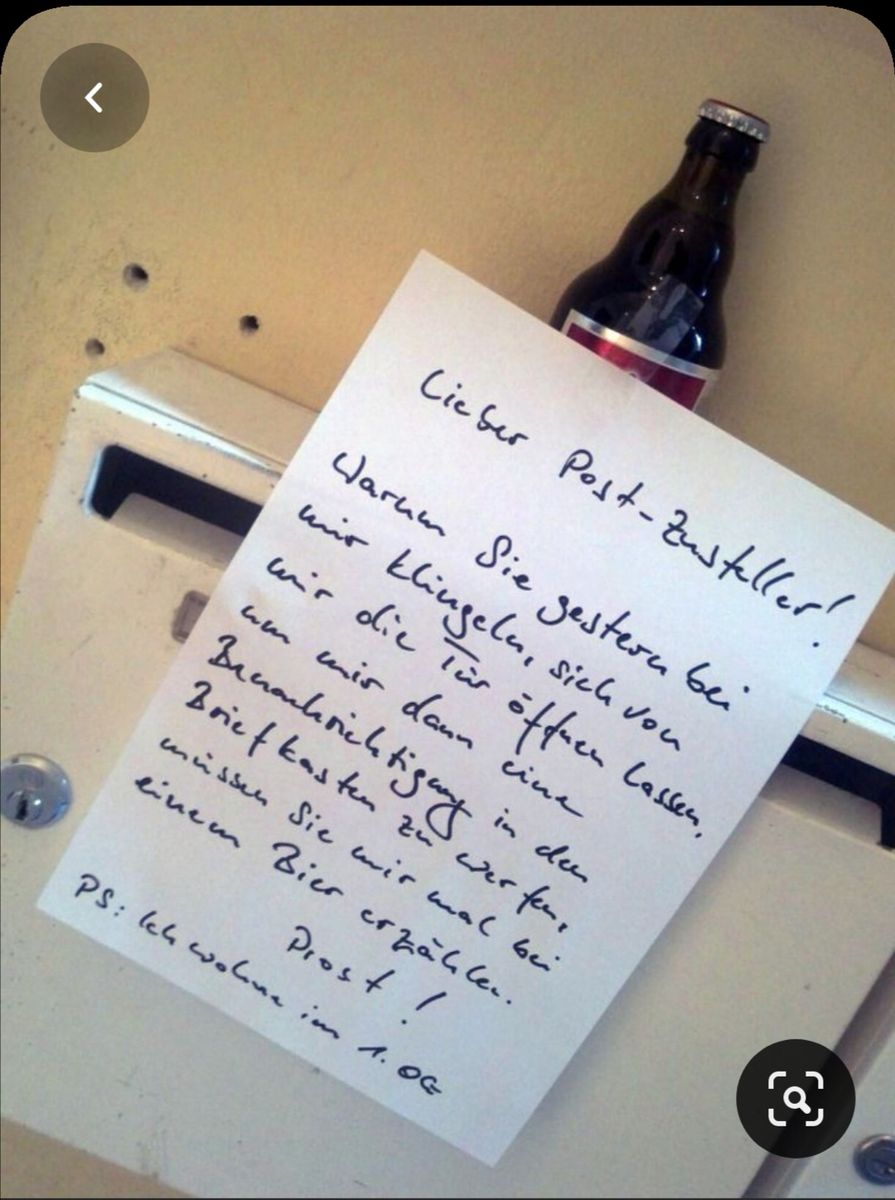 Lieber Post-Zusteller!
Warum Sie gestern bei
mir klingeln, sich von
mir die Tür öffnen lassen,
um mir dann eine
Benachrichtigung in den
Briefkasten zu werfen,
müssen Sie mir mal bei
einem Bier erzählen.
Prost!
PS: Ich wohne im 1. OG